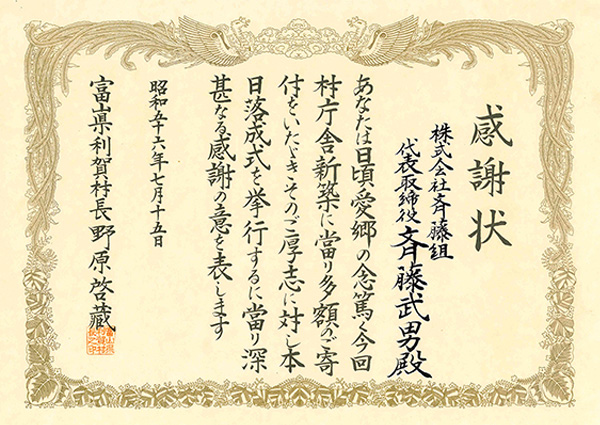 感謝状
株式会社斉藤組
代表取締役 斉藤武男殿
あなたは日頃愛郷の念篤く今回
村庁舎新築に當り多額のご寄
付をいただきそのご厚志に対し本
日落成式を挙行するに當り深
甚なる感謝の意を表します
昭和五十六年七月十五日
富山県利賀村長 野原啓蔵